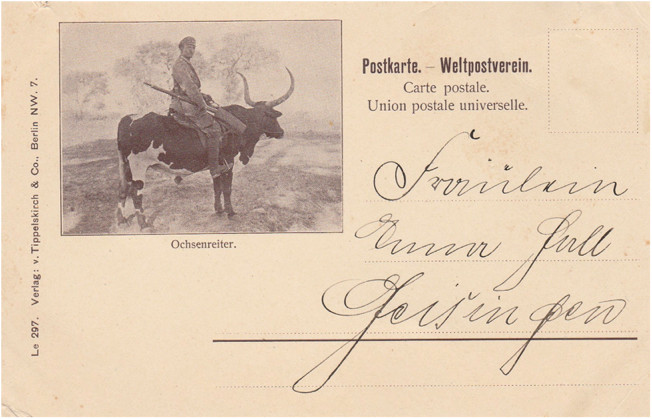 Postkarte. – Weltpostverein.
Carte postale.
Union postale universelle.
Ochsenreiter.
Le 297. Verlag: v. Tippelskirch & Co., Berlin NW. 7.
Fräulein
Anna Fall
Geisingen